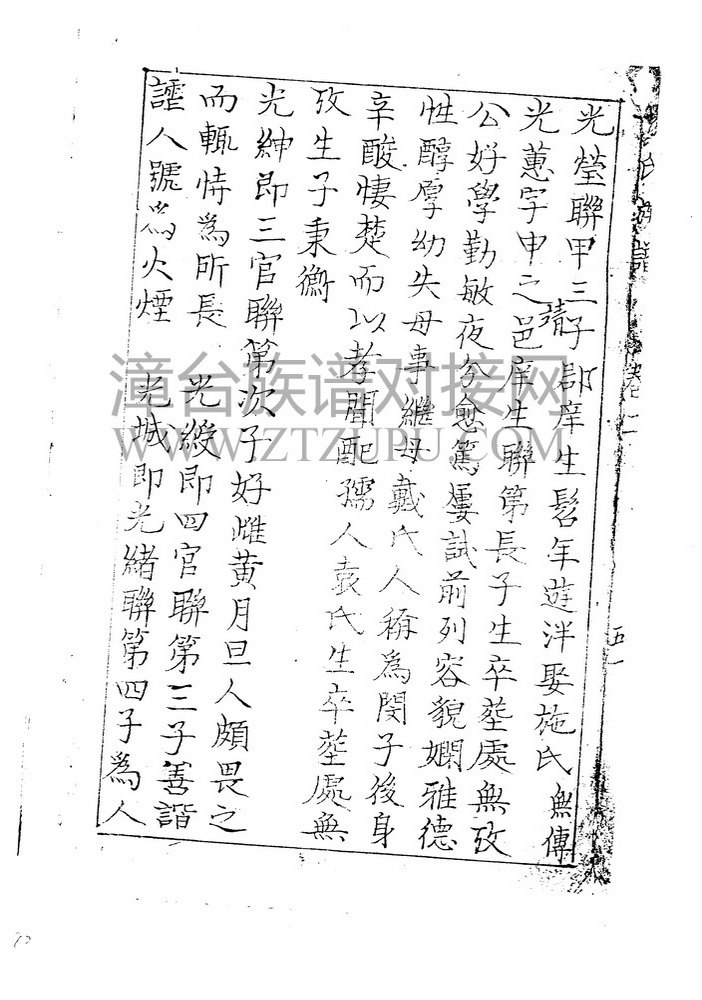 光瑩聯甲三子郡庠生髫年遊泮娶施氏無傳
光蕙字申之靖邑庠生聯第長子生卒塟處無攷
公好學勤敏夜分愈篤屢試前列容貌嫻雅德
性醇厚幼失母事繼母戴氏人稱為閔子後身
辛酸悽楚而以孝聞配孺人袁氏生卒塟處無
攷生子秉衡
光紳即三官聯第次子好雌黃月旦人頗畏之
而輒恃為所長 光綬即四官聯第三子善諧
謔人號為火煙 光城即光緒聯第四子為人
氏族譜 卷一
五一
漳台族谱对接网
WWW.ZTZUPU.COM